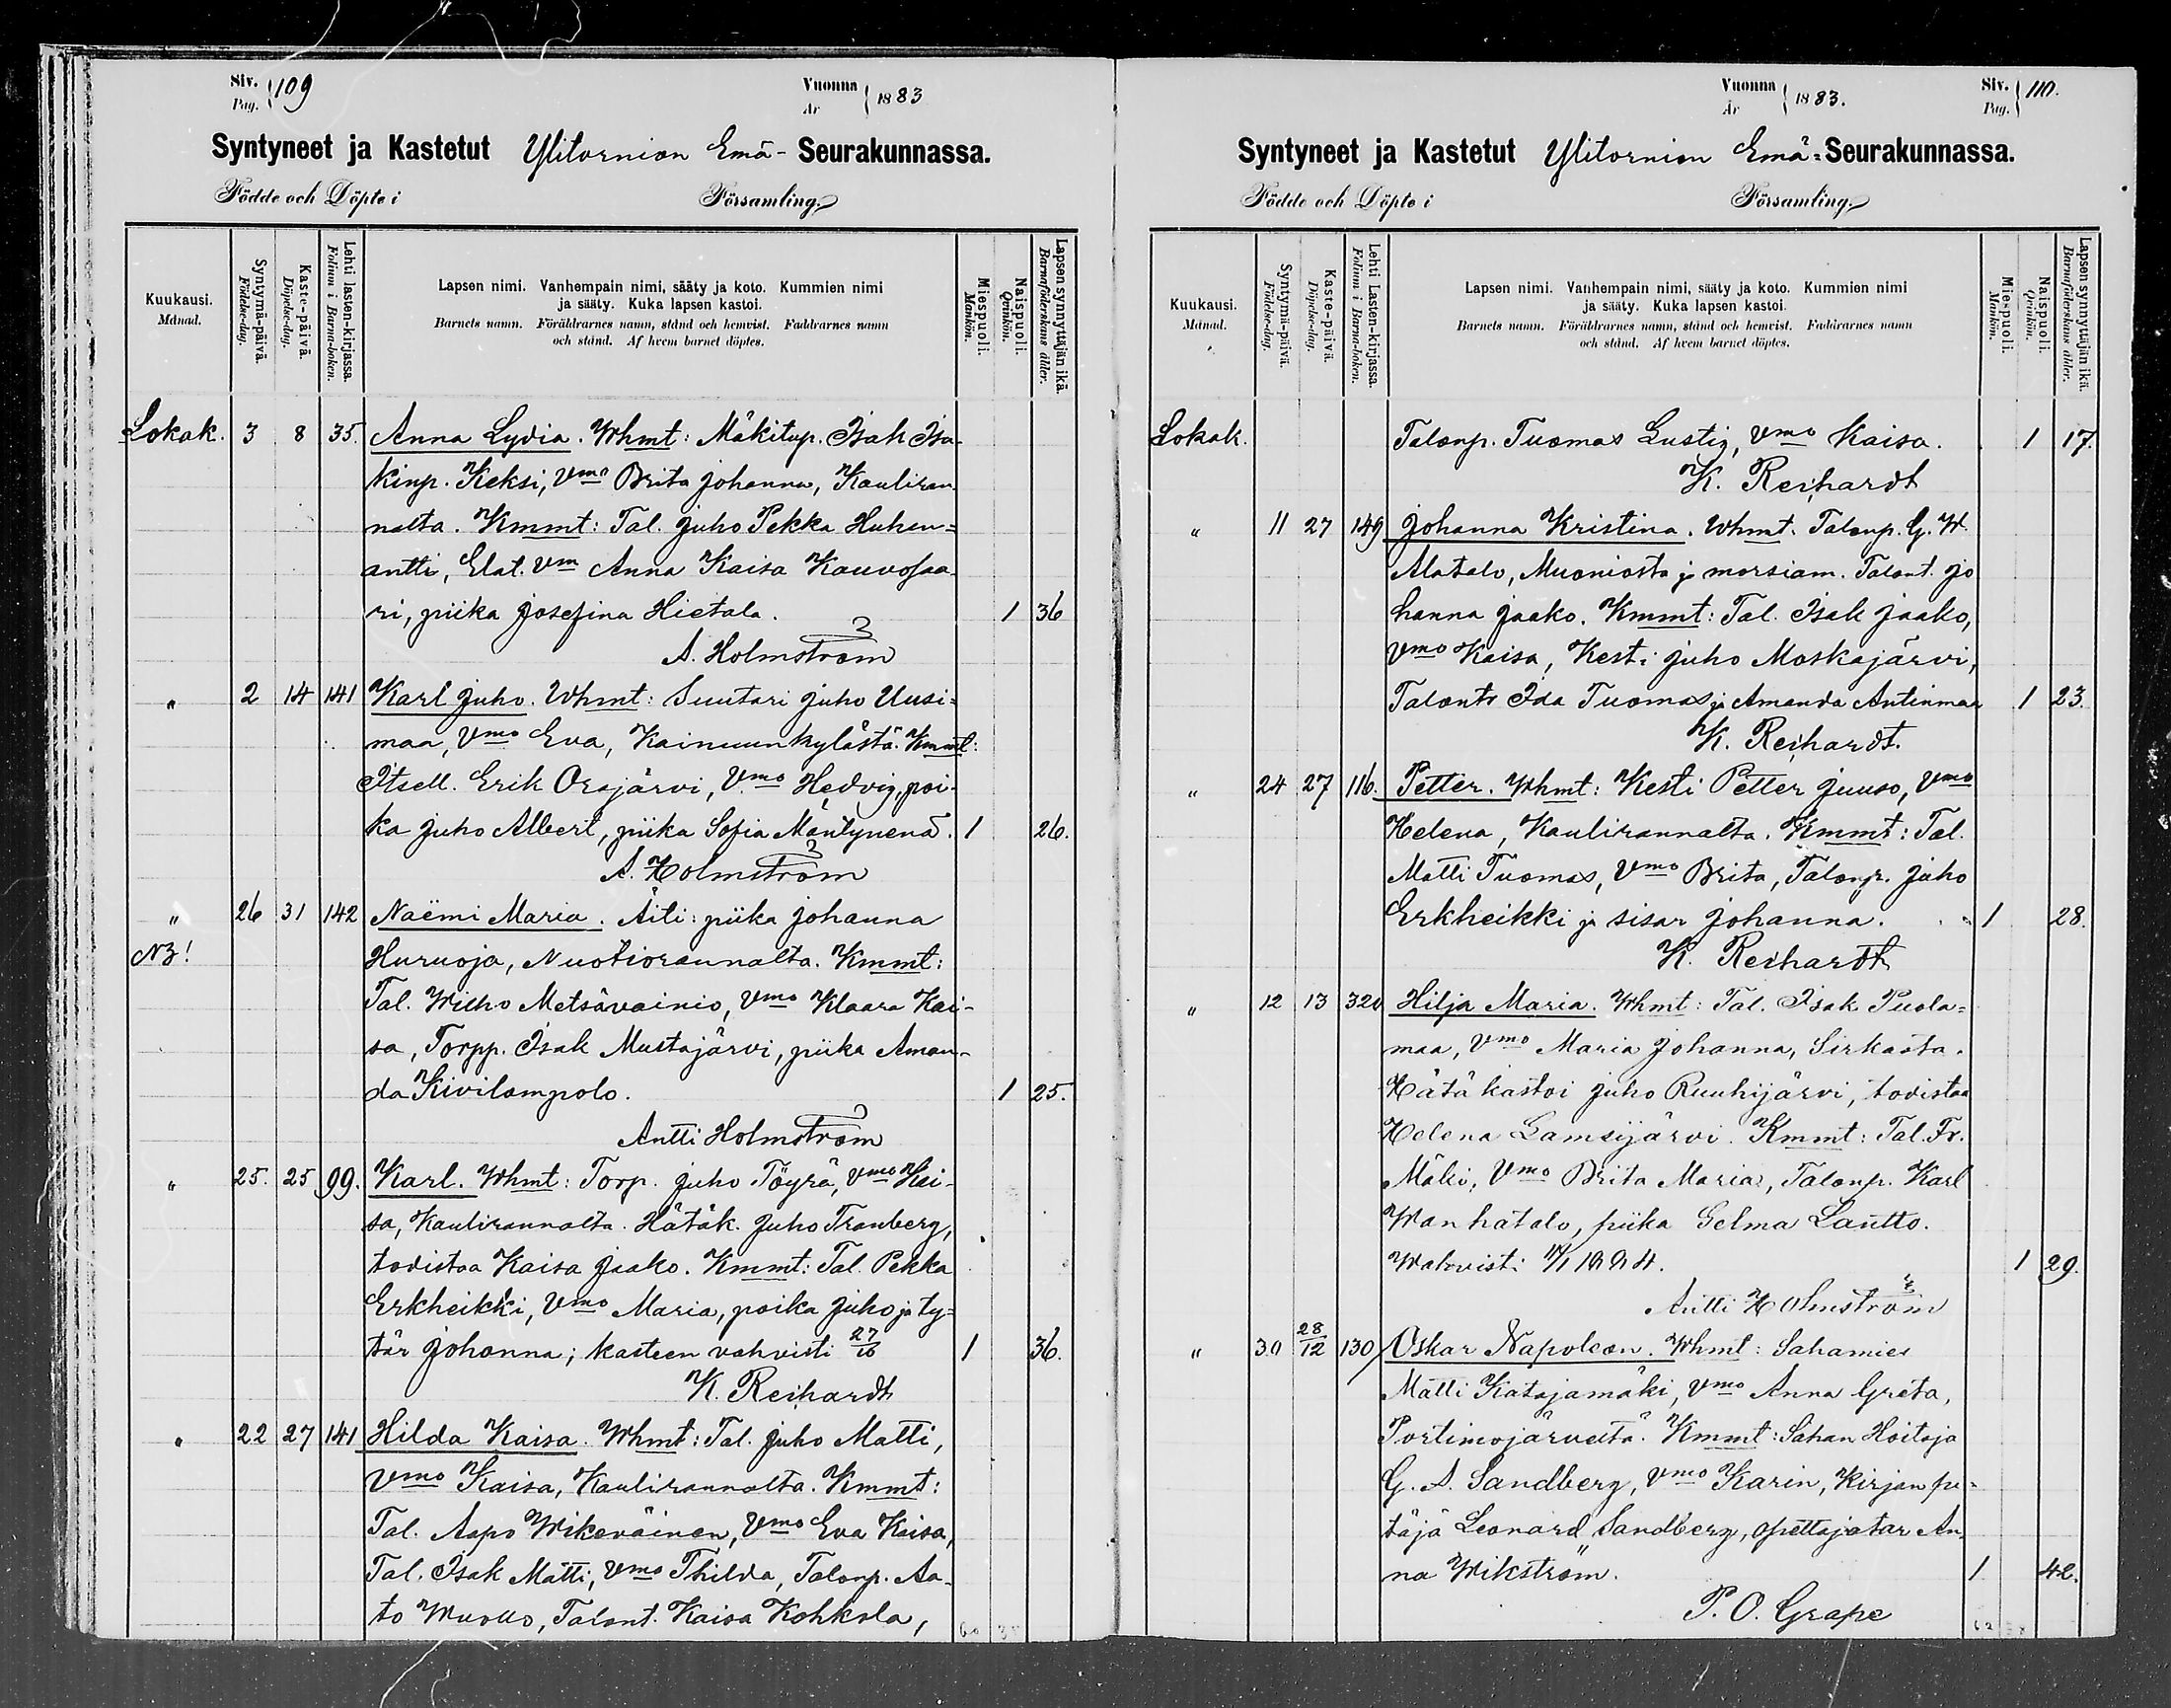 Siv. Pag. 109
Vuonna År 1883
Syntyneet ja Kastetut Ylitornion Emä- Seurakunnassa.
Födde och Döpte i Församling.
Kuukausi. Månad.
Syntymä-päivä. Födelse-dag.
Kaste-päivä. Döpelse-dag.
Lehti lasten-kirjassa. Folium i Barna-boken.
Lapsen nimi. Vanhempain nimi, sääty ja koto. Kummien nimi
ja sääty. Kuka lapsen kastoi.
Barnets namn. Föräldrarnes namn, stånd och hemvist. Faddrarnes namn
och stånd. Af hvem barnet döptes.
Miespuoli. Mankön.
Naispuoli. Qvinkön.
Lapsen synnyttäjän ikä. Barnaföderskans ålder.
Lokak. 3 8 35. Anna Lydia. Whmt: Mäkitup. Isak Isa-
kinp. Keksi, Vmo Brita Johanna, Kauliran-
nalta. Kmmt: Tal. Juho Pekka Huhan=
antti, Elat. Vm Anna Kaisa Kauvosaa-
ri, piika Josefina Hietala. 1 36
A. Holmström
" 2 14 141 Karl Juho. Whmt: Suutari Juho Uusi=
maa, Vmo Eva, Kainuunkylästä. Kmmt:
Itsell. Erik Orajärvi, Vmo Hedvig, poi-
ka Juho Albert, piika Sofia Mäntynenä. 1 26.
A. Holmström
" 26 31 142 Naëmi Maria. Äiti: piika Johanna
NB! Huruoja, Nuotiorannalta. Kmmt:
Tal. Wilho Metsävainio, Vmo Klaara Kai-
sa, Torpp. Isak Mustajärvi, piika Aman-
da Kivilompolo. 1 25.
Antti Holmström
" 25. 25 99. Karl. Whmt: Torp. Juho Töyrä, Vmo Kai-
sa, Kaulirannalta. Hätäk. Juho Tranberg,
todistaa Kaisa Jaako. Kmmt: Tal. Pekka
Erkheikki, Vmo Maria, poika Juho ja ty=
tär Johanna; kasteen vahvisti 27/10 1 36.
K. Reihardt
" 22 27 141 Hilda Kaisa. Whmt: Tal. Juho Matti,
Vmo Kaisa, Kaulirannalta. Kmmt:
Tal. Aapo Wikeväinen, Vmo Eva Kaisa,
Tal. Isak Matti, Vmo Thilda, Talonp. Aa-
to Talont. Kaisa Kohkola,
Vuonna År 1883.
Siv. Pag. 110.
Syntyneet ja Kastetut Ylitornion Emä= Seurakunnassa.
Födde och Döpte i Församling.
Kuukausi. Månad.
Syntymä-päivä. Födelse-dag.
Kaste-päivä. Döpelse-dag.
Lehti Lasten-kirjassa. Folium i Barna-boken.
Lapsen nimi. Vanhempain nimi, sääty ja koto. Kummien nimi
ja sääty. Kuka lapsen kastoi.
Barnets namn. Föräldrarnes namn, stånd och hemvist. Faddrarnes namn
och stånd. Af hvem barnet döptes.
Miespuoli. Mankön.
Naispuoli. Qvinkön.
Lapsen synnyttäjän ikä. Barnaföderskans ålder.
Lokak. Talonp. Tuomas Lustig, Vmo Kaisa. 1 17.
K. Reihardt
" 11 27 149 Johanna Kristina. Whmt. Talonp. G. W.
Alatalo, Muoniosta ja morsiam. Talont. Jo
hanna Jaako. Kmmt: Tal. Isak Jaako,
Vmo Kaisa, Kesti Juho Moskajärvi,
Talontr Ida Tuomas ja Amanda Antinmaa 1 23.
K. Reihardt.
" 24 27 116. Petter. Whmt: Kesti Petter Juuso, Vmo
Helena, Kaulirannalta. Kmmt: Tal.
Matti Tuomas, Vmo Brita, Talonp. Juho
Erkheikki ja sisar Johanna. 1 28.
K. Reihardt
" 12 13 320 Hilja Maria. Whmt: Tal. Isak Puola=
maa, Vmo Maria Johanna, Sirkasta.
Hätä kastoi Juho Ruuhijärvi, todistaa
Helena Lamsijärvi. Kmmt: Tal. Fr.
Mäki, Vmo Brita Maria, Talonp. Karl
Wanhatalo, piika Selma Lantto.
Wahvisti 1 29.
Antti Holmström
" 30 28/12 130 Oskar Napoleon. Whmt: Sahamies
Matti Katajamäki, Vmo Anna Greta,
Portimojärveltä. Kmmt: Sahan Hoitaja
G. A. Sandberg, Vmo Karin, Kirjanpi-
täjä Leonard Sandberg, opettajatar An-
na Wikström. 1 42.
P. O. Grape